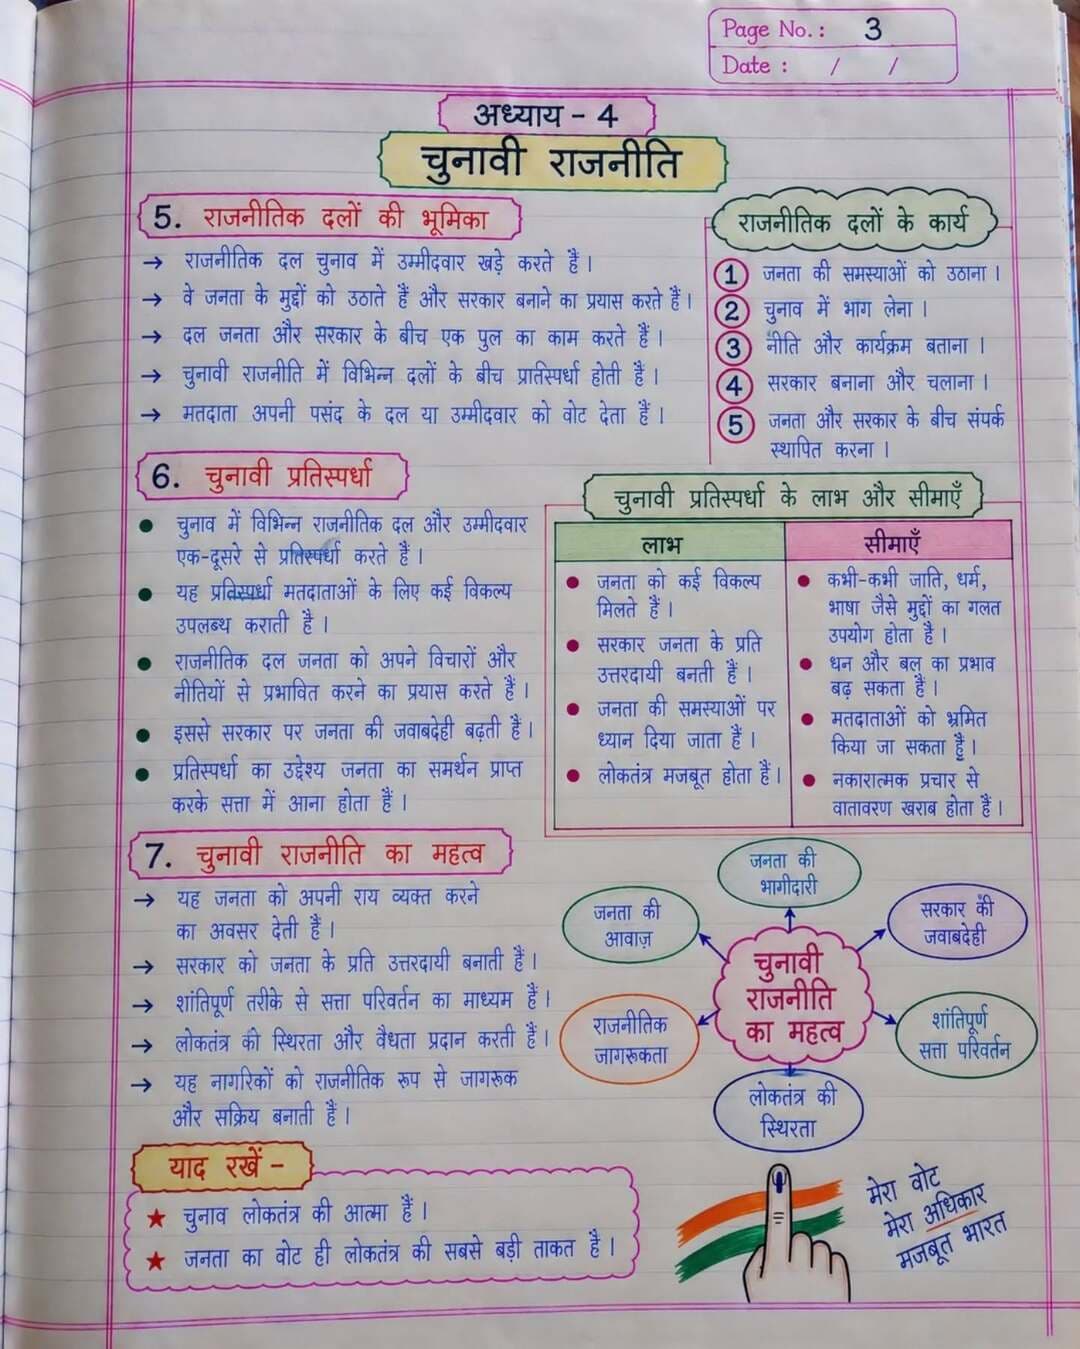 Page No. : 3
Date : / /
अध्याय - 4
चुनावी राजनीति
5. राजनीतिक दलों की भूमिका
→ राजनीतिक दल चुनाव में उम्मीदवार खड़े करते हैं।
→ वे जनता के मुद्दों को उठाते हैं और सरकार बनाने का प्रयास करते हैं।
→ दल जनता और सरकार के बीच एक पुल का काम करते हैं।
→ चुनावी राजनीति में विभिन्न दलों के बीच प्रातिस्पर्धा होती है।
→ मतदाता अपनी पसंद के दल या उम्मीदवार को वोट देता है।
राजनीतिक दलों के कार्य
1 जनता की समस्याओं को उठाना।
2 चुनाव में भाग लेना।
3 नीति और कार्यक्रम बताना।
4 सरकार बनाना और चलाना।
5 जनता और सरकार के बीच संपर्क
स्थापित करना।
6. चुनावी प्रतिस्पर्धा
• चुनाव में विभिन्न राजनीतिक दल और उम्मीदवार
एक-दूसरे से प्रतिस्पर्धा करते हैं।
• यह प्रतिस्पर्धा मतदाताओं के लिए कई विकल्प
उपलब्ध कराती है।
• राजनीतिक दल जनता को अपने विचारों और
नीतियों से प्रभावित करने का प्रयास करते हैं।
• इससे सरकार पर जनता की जवाबदेही बढ़ती हैं।
• प्रतिस्पर्धा का उद्देश्य जनता का समर्थन प्राप्त
करके सत्ता में आना होता हैं।
चुनावी प्रतिस्पर्धा के लाभ और सीमाएँ
लाभ
• जनता को कई विकल्प
मिलते हैं।
• सरकार जनता के प्रति
उत्तरदायी बनती हैं।
• जनता की समस्याओं पर
ध्यान दिया जाता हैं।
• लोकतंत्र मजबूत होता हैं।
सीमाएँ
• कभी-कभी जाति, धर्म,
भाषा जैसे मुद्दों का गलत
उपयोग होता हैं।
• धन और बल का प्रभाव
बढ़ सकता हैं।
• मतदाताओं को भ्रमित
किया जा सकता है।
• नकारात्मक प्रचार से
वातावरण खराब होता हैं।
7. चुनावी राजनीति का महत्व
→ यह जनता को अपनी राय व्यक्त करने
का अवसर देती हैं।
→ सरकार को जनता के प्रति उत्तरदायी बनाती हैं।
→ शांतिपूर्ण तरीके से सत्ता परिवर्तन का माध्यम हैं।
→ लोकतंत्र की स्थिरता और वैधता प्रदान करती हैं।
→ यह नागरिकों को राजनीतिक रूप से जागरूक
और सक्रिय बनाती हैं।
जनता की
भागीदारी
जनता की
आवाज़
सरकार की
जवाबदेही
चुनावी
राजनीति
का महत्व
राजनीतिक
जागरूकता
शांतिपूर्ण
सत्ता परिवर्तन
लोकतंत्र की
स्थिरता
याद रखें -
★ चुनाव लोकतंत्र की आत्मा हैं।
★ जनता का वोट ही लोकतंत्र की सबसे बड़ी ताकत है।
मेरा वोट
मेरा अधिकार
मजबूत भारत